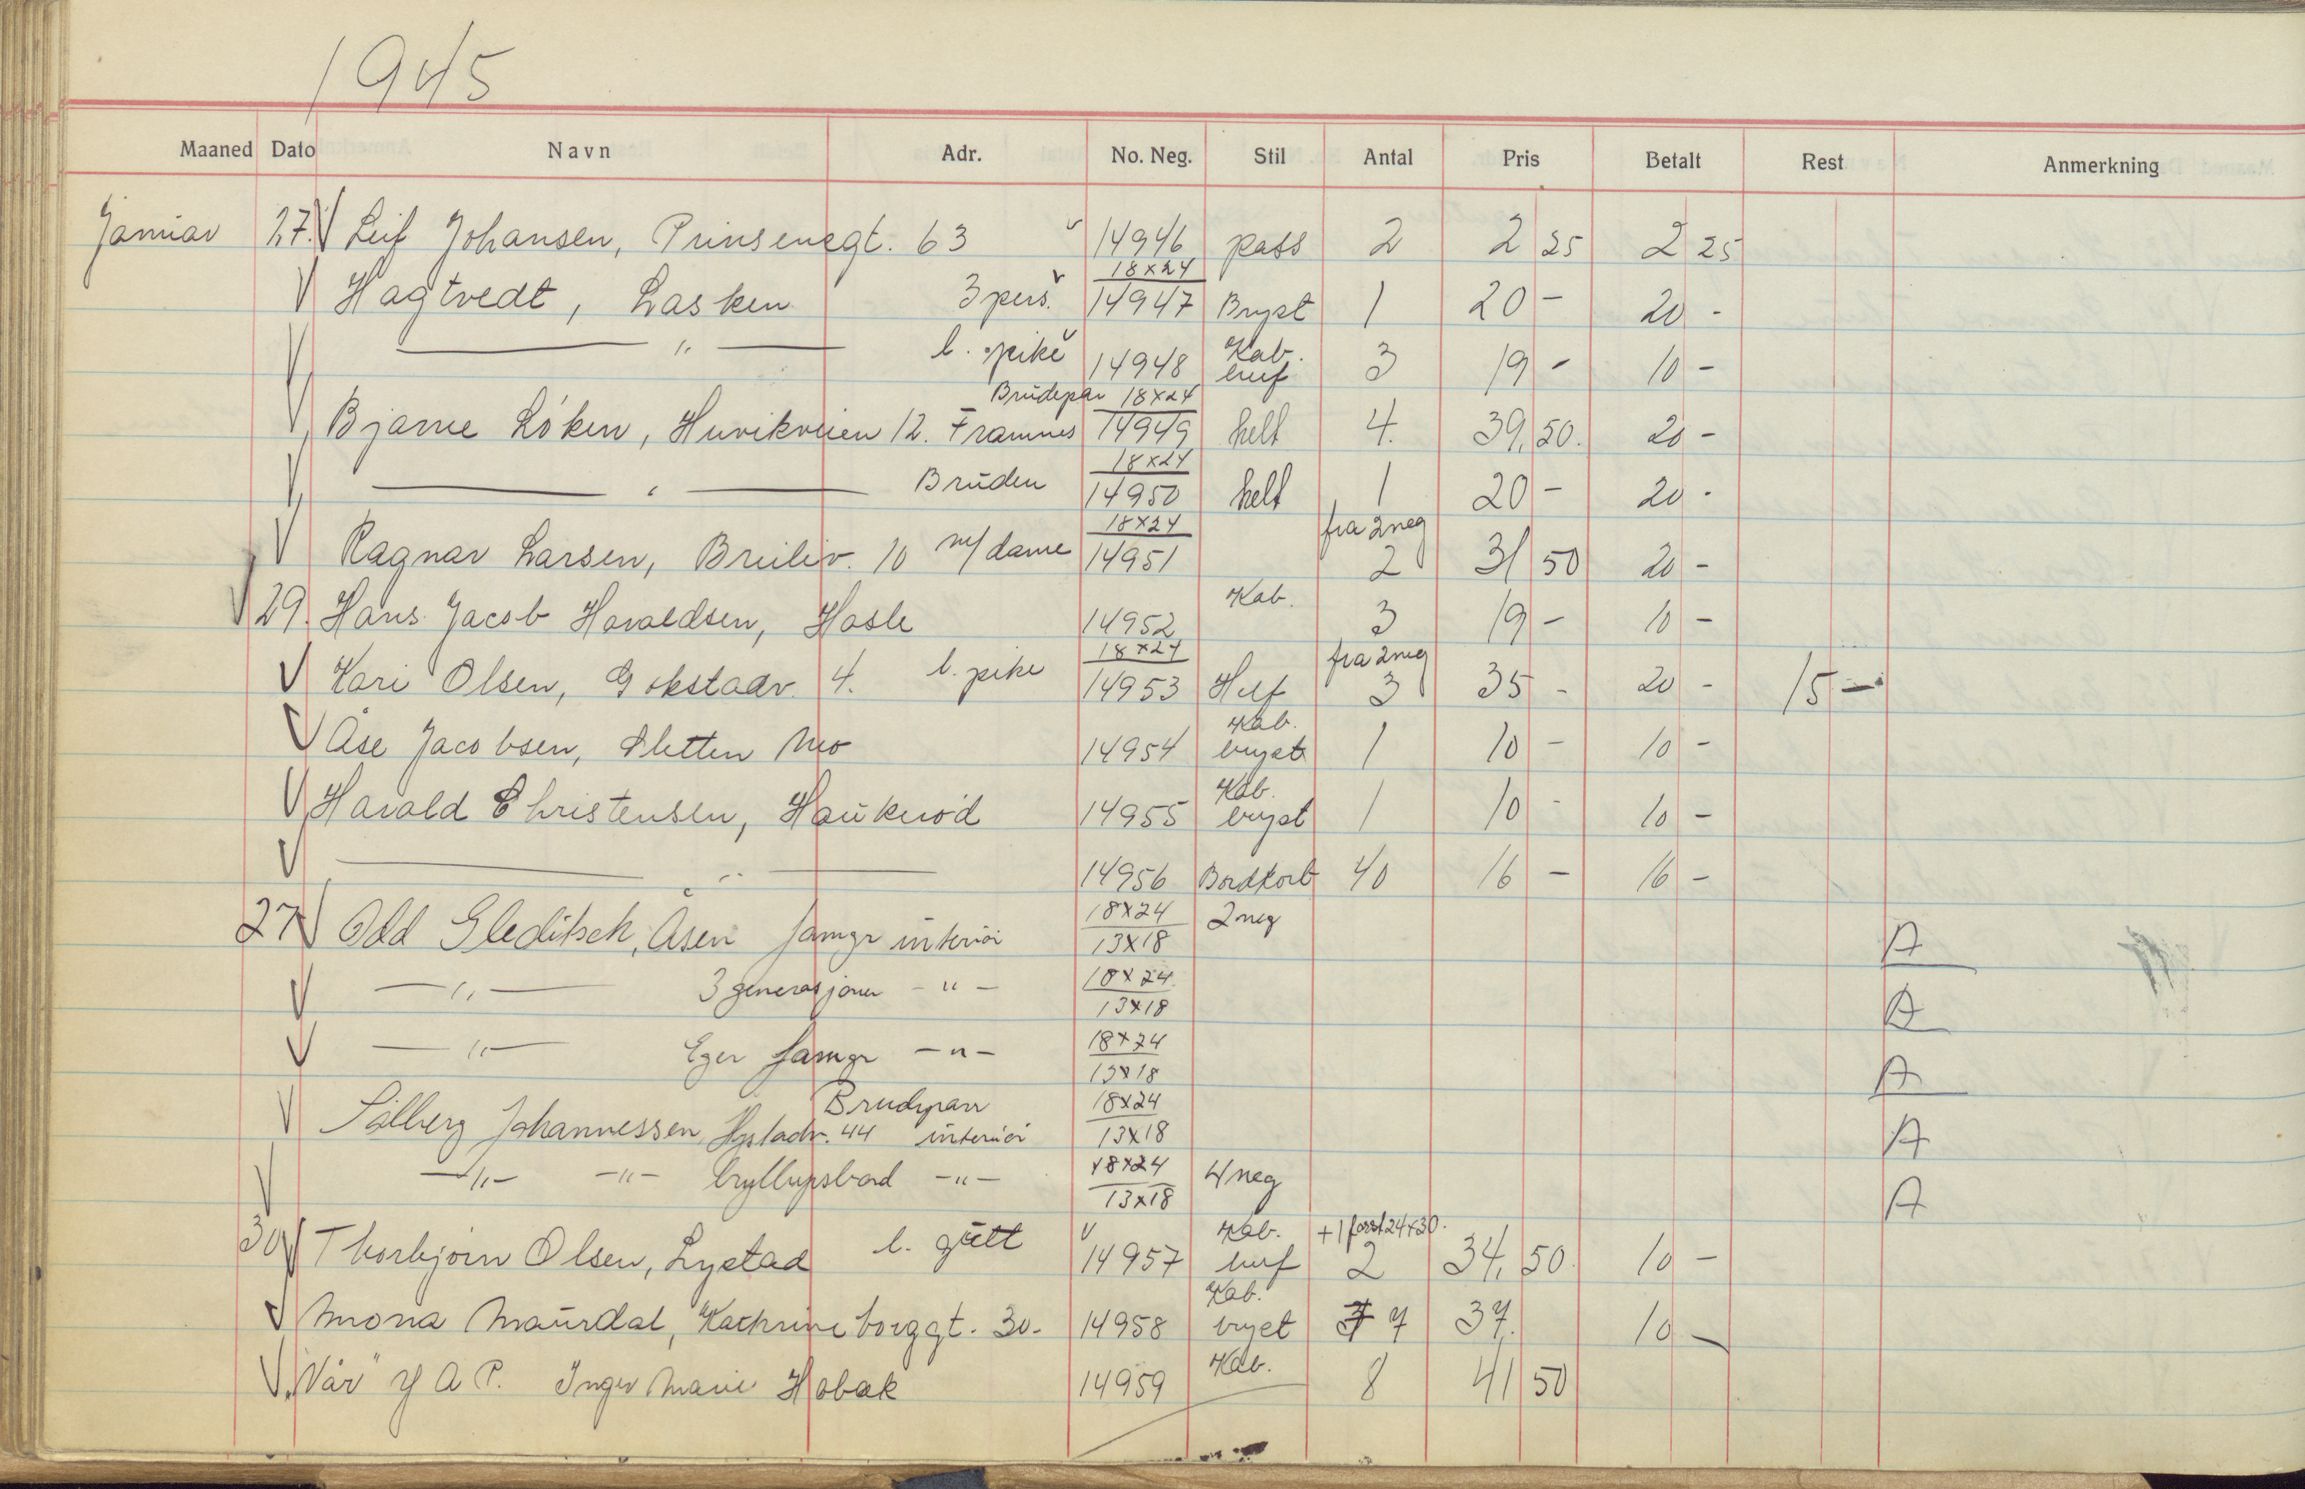 1945
Maaned Dato Navn Adr. No. Neg. Stil Antal Pris Betalt Rest Anmerkning
Januar 27. Leif Johansen, Prinsensgt. 63 14946 pass 2 2 25 2 25
18x24
Hagtvedt, Lasken 3 pers. 14947 Bryst 1 20 - 20 -
Kab.
—— " —— l. pike 14948 3 19 - 10 -
Brudepar 18x24
Bjarne Löken, Huvikveien 12. Framnes 14949 helt 4. 39, 50. 20 -
18x24
—— " —— Bruden 14950 helt 1 20 - 20 -
18x24 fra 2 neg
Ragnar Larsen, Breiliv. 10 m/dame 14951 2 31 50 20 -
Kab.
29. Hans Jacob Haraldsen, Hasle 14952 3 19 - 10 -
18x24 fra 2 neg
Kari Olsen, Gokstadv. 4. l. pike 14953 3 35 - 20 - 15 -
Kab.
Åse Jacobsen, Sletten Mo 14954 bryst 1 10 - 10 -
Kab.
Harald Christensen, Haukeröd 14955 bryst 1 10 - 10 -
—— " —— 14956 Bordkort 40 16 - 16 -
27 Odd Gleditsch, Åsen famgr interiör 18x24 2 neg A
13x18
— " — 3 generasjoner - " - 18x24 A
13x18
— " — Eger famgr - " - 18x24 A
13x18
Brudepar 18x24
Solberg Johannessen 44 interiör 13x18 A
— " — - " - bryllupsbord - " - 18x24 4 neg A
13x18
Kab. +1 forst 24x30.
30 Thorbjörn Olsen, Lystad l. gutt 14957 2 34, 50. 10 -
Kab.
Mona Maurdal, Kathrineborggt. 30. 14958 bryst 7 37. 10 -
Kab.
"Vår" Inger Marie Hobæk 14959 8 41 50